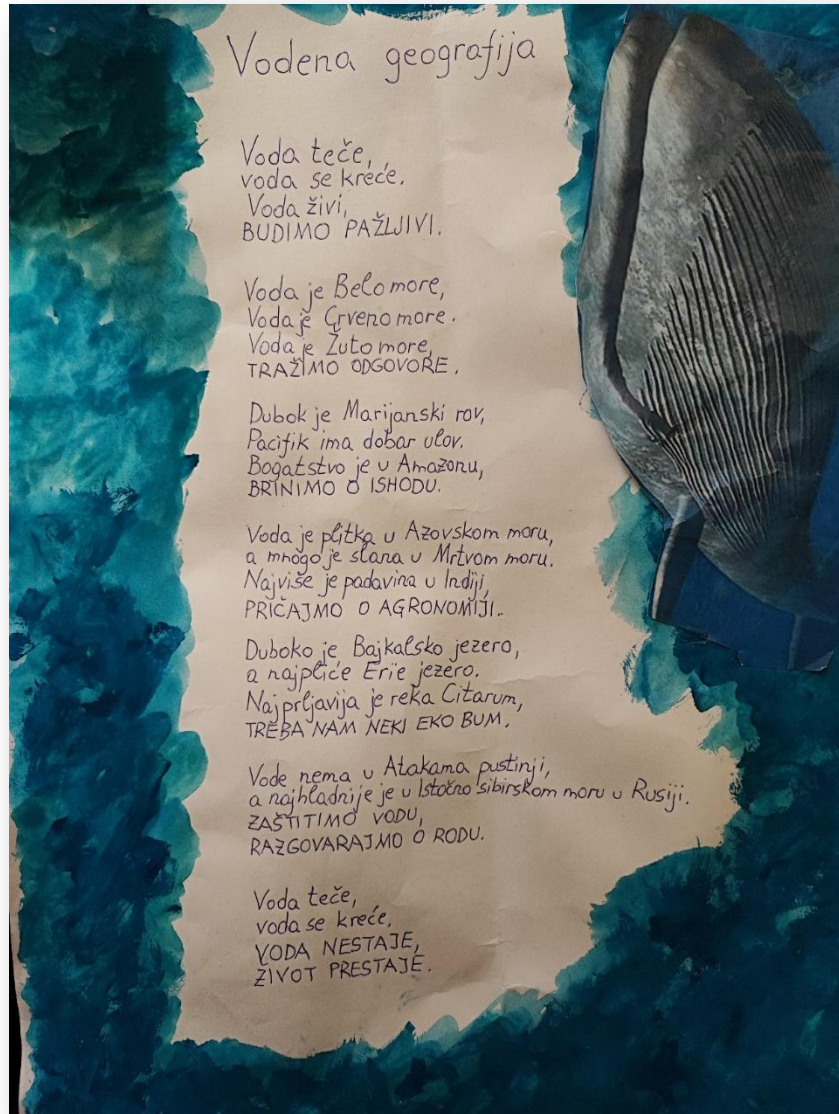 Vodena geografija
Voda teče,
voda se kreće.
Voda živi,
BUDIMO PAŽLJIVI.
Voda je Belo more,
Voda je Crveno more.
Voda je Žuto more,
TRAŽIMO ODGOVORE.
Dubok je Marijanski rov,
Pacifik ima dobar ulov.
Bogatstvo je u Amazonu,
BRINIMO O ISHODU.
Voda je plitka u Azovskom moru,
a mnogo je slana u Mrtvom moru.
Najviše je padavina u Indiji,
PRIČAJMO O AGRONOMIJI.
Duboko je Bajkalsko jezero,
a najpliće Erie jezero.
Najprljavija je reka Citarum,
TREBA NAM NEKI EKO BUM.
Vode nema u Atakama pustinji,
a najhladnije je u Istočno sibirskom moru u Rusiji.
ZAŠTITIMO VODU,
RAZGOVARAJMO O RODU.
Voda teče,
voda se kreće,
VODA NESTAJE,
ŽIVOT PRESTAJE.